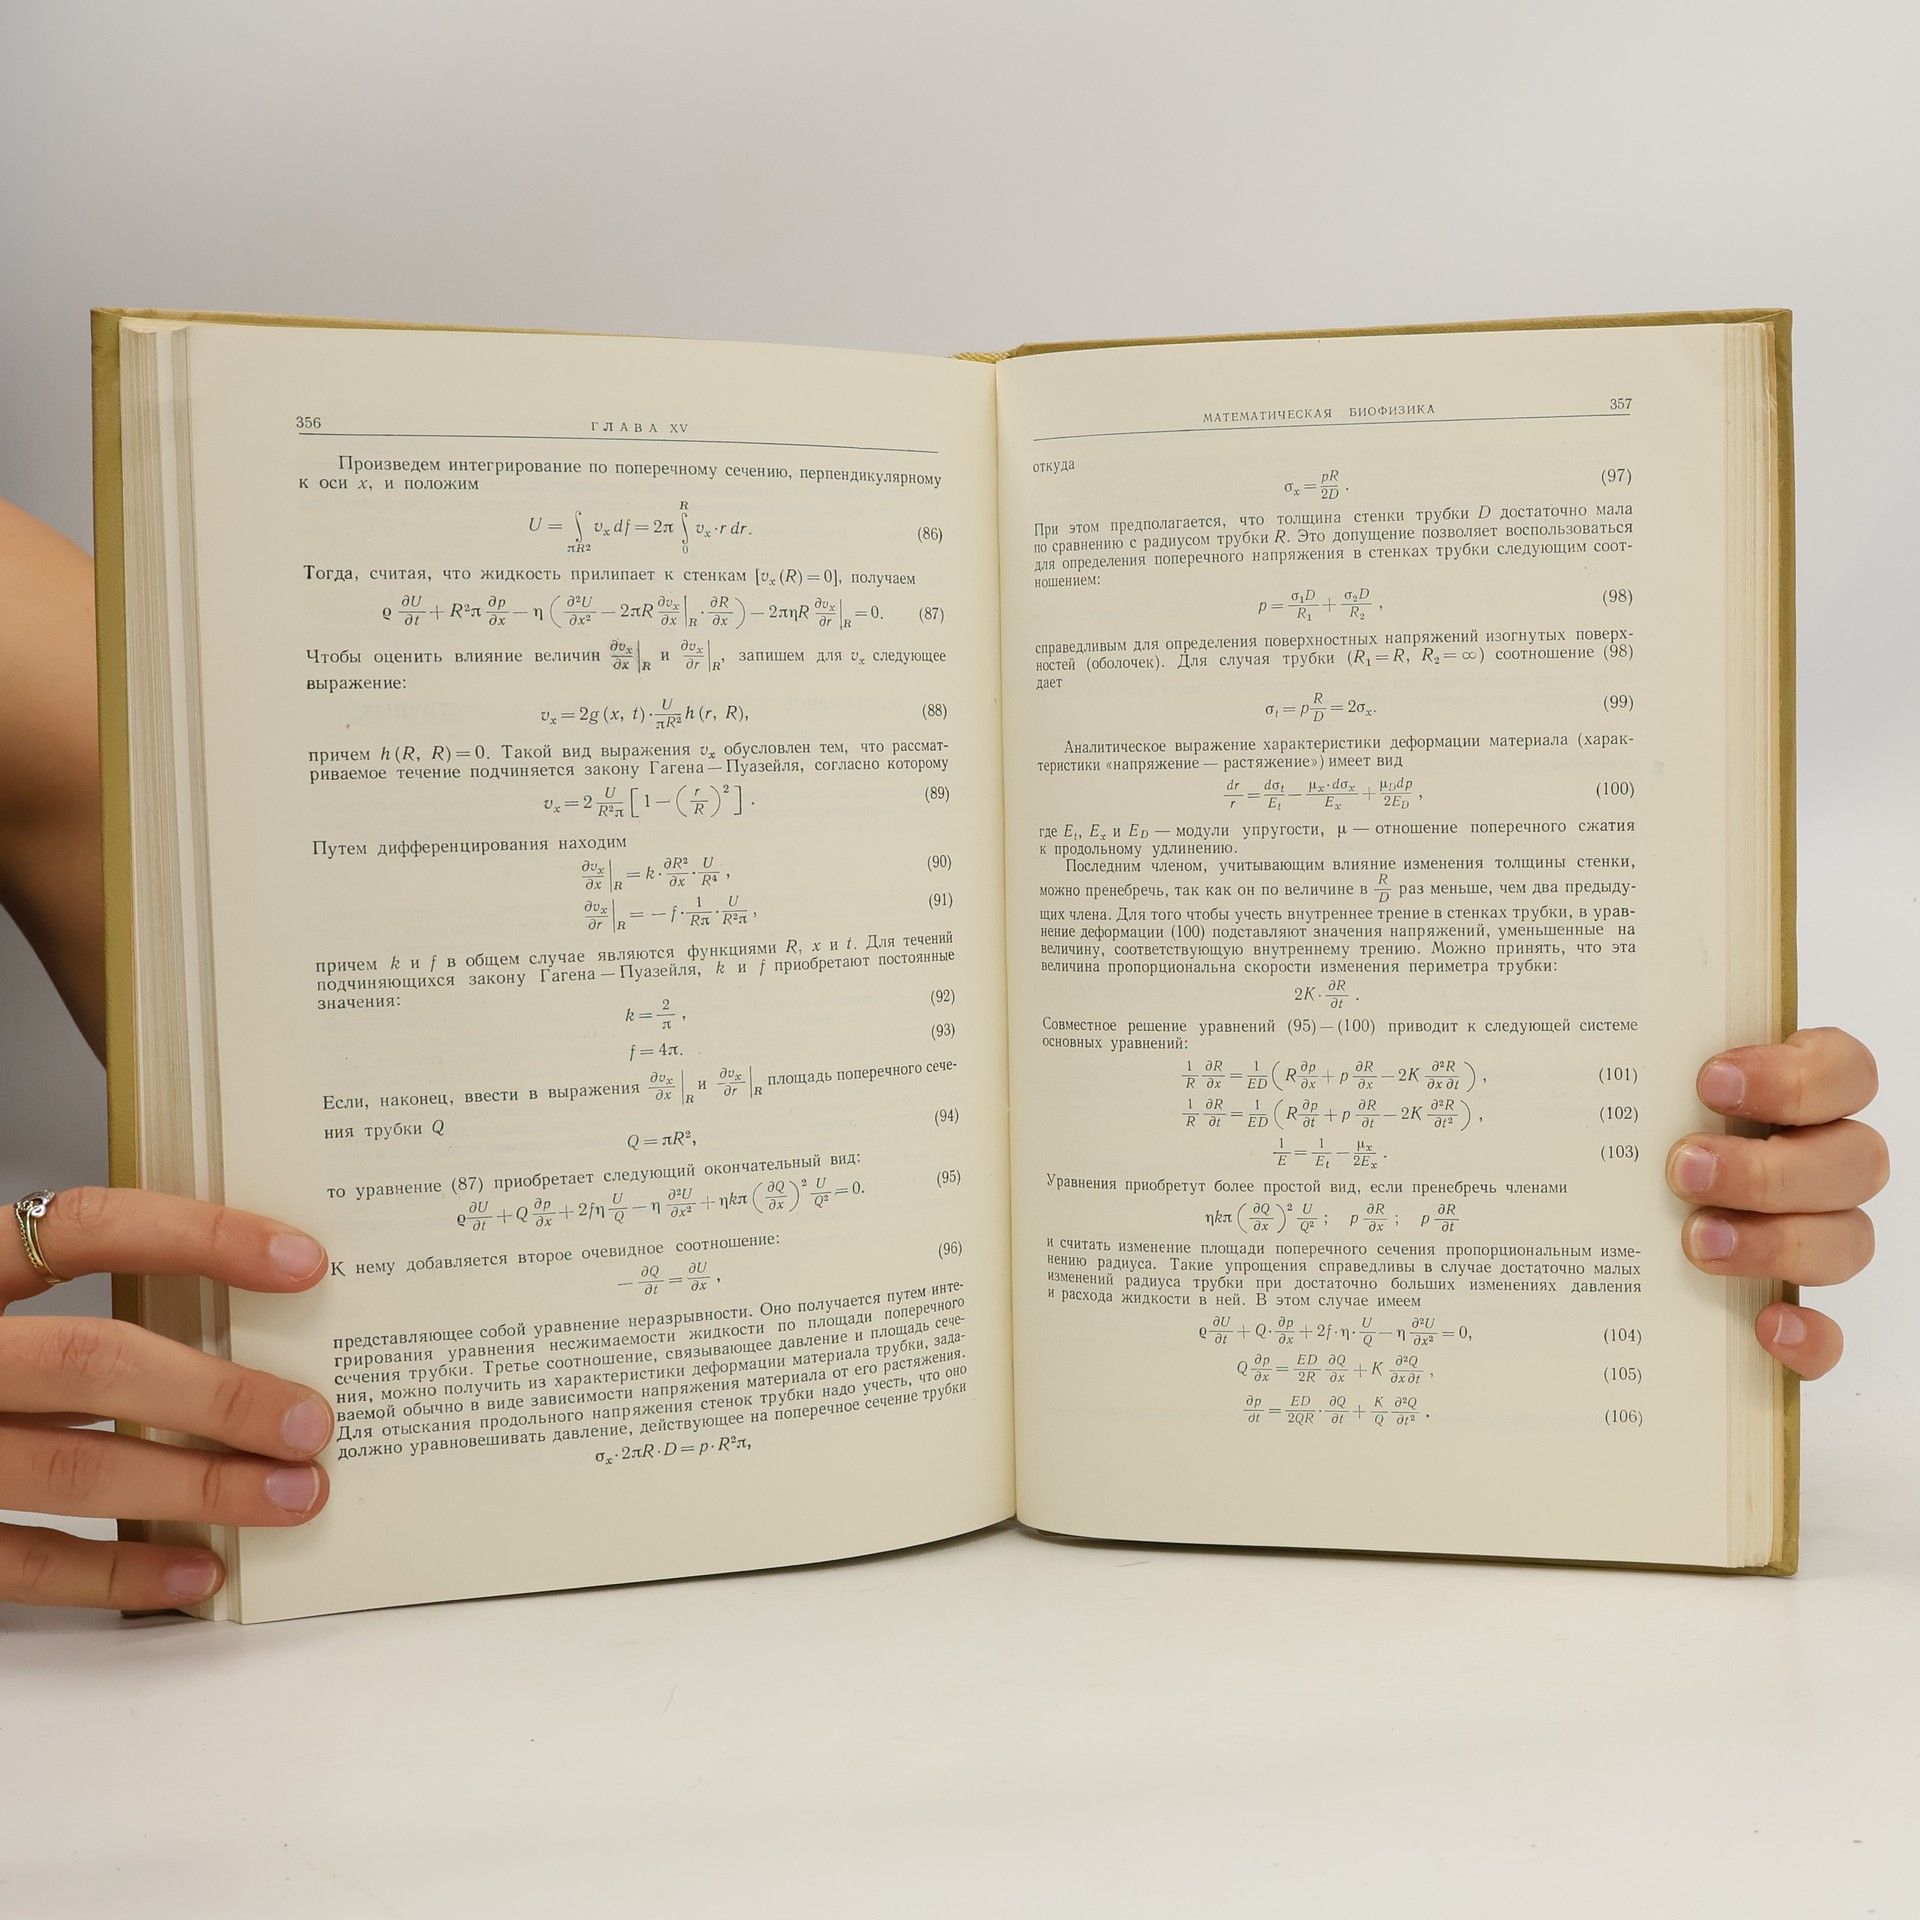 356
ГЛАВА XV
Произведем интегрирование по поперечному сечению, перпендикулярному
к оси x, и положим
U = ∫_{πR²} v_x df = 2π ∫_0^R v_x · r dr. (86)
Тогда, считая, что жидкость прилипает к стенкам [v_x (R) = 0], получаем
ϱ ∂U/∂t + R²π ∂p/∂x − η (∂²U/∂x² − 2πR ∂v_x/∂x |_R · ∂R/∂x) − 2πηR ∂v_x/∂r |_R = 0. (87)
Чтобы оценить влияние величин ∂v_x/∂x |_R и ∂v_x/∂r |_R, запишем для v_x следующее
выражение:
v_x = 2g (x, t) · U/πR² h (r, R), (88)
причем h (R, R) = 0. Такой вид выражения v_x обусловлен тем, что рассмат-
риваемое течение подчиняется закону Гагена — Пуазейля, согласно которому
v_x = 2 U/R²π [1 − (r/R)²]. (89)
Путем дифференцирования находим
∂v_x/∂x |_R = k · ∂R²/∂x · U/R⁴, (90)
∂v_x/∂r |_R = − f · 1/Rπ · U/R²π, (91)
причем k и f в общем случае являются функциями R, x и t. Для течений
подчиняющихся закону Гагена — Пуазейля, k и f приобретают постоянные
значения:
k = 2/π, (92)
f = 4π. (93)
Если, наконец, ввести в выражения ∂v_x/∂x |_R и ∂v_x/∂r |_R площадь поперечного сече-
ния трубки Q
Q = πR², (94)
то уравнение (87) приобретает следующий окончательный вид:
ϱ ∂U/∂t + Q ∂p/∂x + 2fη U/Q − η ∂²U/∂x² + ηkπ (∂Q/∂x)² U/Q² = 0. (95)
К нему добавляется второе очевидное соотношение:
− ∂Q/∂t = ∂U/∂x, (96)
представляющее собой уравнение неразрывности. Оно получается путем инте-
грирования уравнения несжимаемости жидкости по площади поперечного
сечения трубки. Третье соотношение, связывающее давление и площадь сече-
ния, можно получить из характеристики деформации материала трубки, зада-
ваемой обычно в виде зависимости напряжения материала от его растяжения.
Для отыскания продольного напряжения стенок трубки надо учесть, что оно
должно уравновешивать давление, действующее на поперечное сечение трубки
σ_x · 2πR · D = p · R²π,
МАТЕМАТИЧЕСКАЯ БИОФИЗИКА
357
откуда
σ_x = pR/2D. (97)
При этом предполагается, что толщина стенки трубки D достаточно мала
по сравнению с радиусом трубки R. Это допущение позволяет воспользоваться
для определения поперечного напряжения в стенках трубки следующим соот-
ношением:
p = σ₁D/R₁ + σ₂D/R₂, (98)
справедливым для определения поверхностных напряжений изогнутых поверх-
ностей (оболочек). Для случая трубки (R₁ = R, R₂ = ∞) соотношение (98)
дает
σ_t = p R/D = 2σ_x. (99)
Аналитическое выражение характеристики деформации материала (харак-
теристики «напряжение — растяжение») имеет вид
dr/r = dσ_t/E_t − μ_x · dσ_x/E_x + μ_D dp/2E_D, (100)
где E_t, E_x и E_D — модули упругости, μ — отношение поперечного сжатия
к продольному удлинению.
Последним членом, учитывающим влияние изменения толщины стенки,
можно пренебречь, так как он по величине в R/D раз меньше, чем два предыду-
щих члена. Для того чтобы учесть внутреннее трение в стенках трубки, в урав-
нение деформации (100) подставляют значения напряжений, уменьшенные на
величину, соответствующую внутреннему трению. Можно принять, что эта
величина пропорциональна скорости изменения периметра трубки:
2K · ∂R/∂t.
Совместное решение уравнений (95) — (100) приводит к следующей системе
основных уравнений:
1/R ∂R/∂x = 1/ED (R ∂p/∂x + p ∂R/∂x − 2K ∂²R/∂x ∂t), (101)
1/R ∂R/∂t = 1/ED (R ∂p/∂t + p ∂R/∂t − 2K ∂²R/∂t²), (102)
1/E = 1/E_t − μ_x/2E_x. (103)
Уравнения приобретут более простой вид, если пренебречь членами
ηkπ (∂Q/∂x)² U/Q²; p ∂R/∂x; p ∂R/∂t
и считать изменение площади поперечного сечения пропорциональным изме-
нению радиуса. Такие упрощения справедливы в случае достаточно малых
изменений радиуса трубки при достаточно больших изменениях давления
и расхода жидкости в ней. В этом случае имеем
ϱ ∂U/∂t + Q · ∂p/∂x + 2f · η · U/Q − η ∂²U/∂x² = 0, (104)
Q ∂p/∂x = ED/2R ∂Q/∂x + K ∂²Q/∂x ∂t, (105)
∂p/∂t = ED/2QR · ∂Q/∂t + K/Q ∂²Q/∂t². (106)